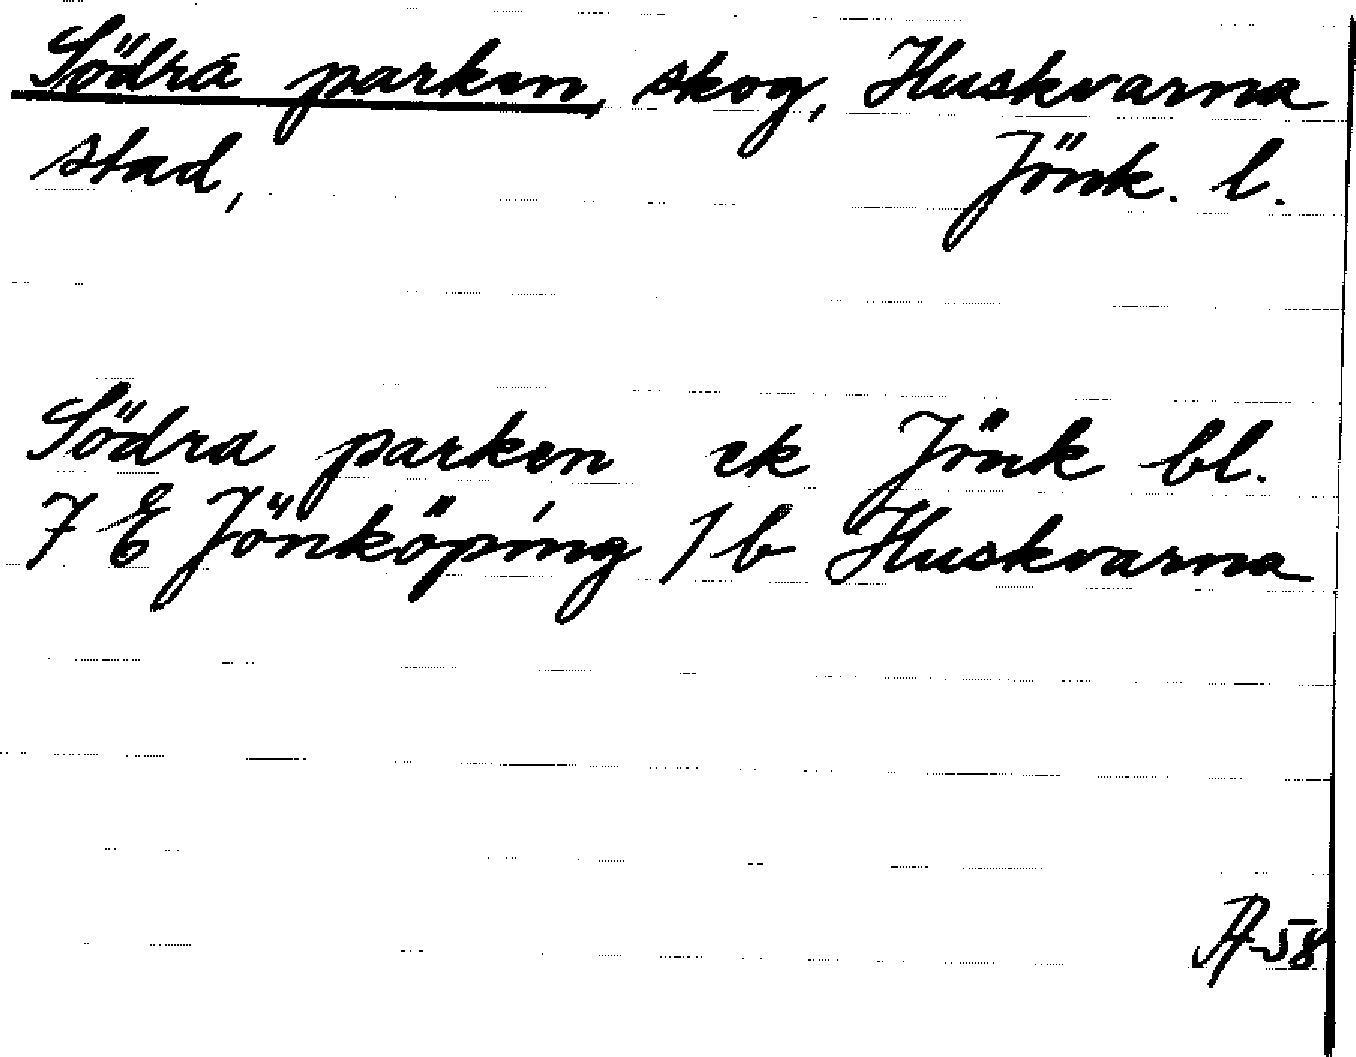 Södra parken, skog, Huskvarna
stad, Jönk. l.
Södra parken ek Jönk bl.
7 E Jönköping / b Huskvarna
A-58